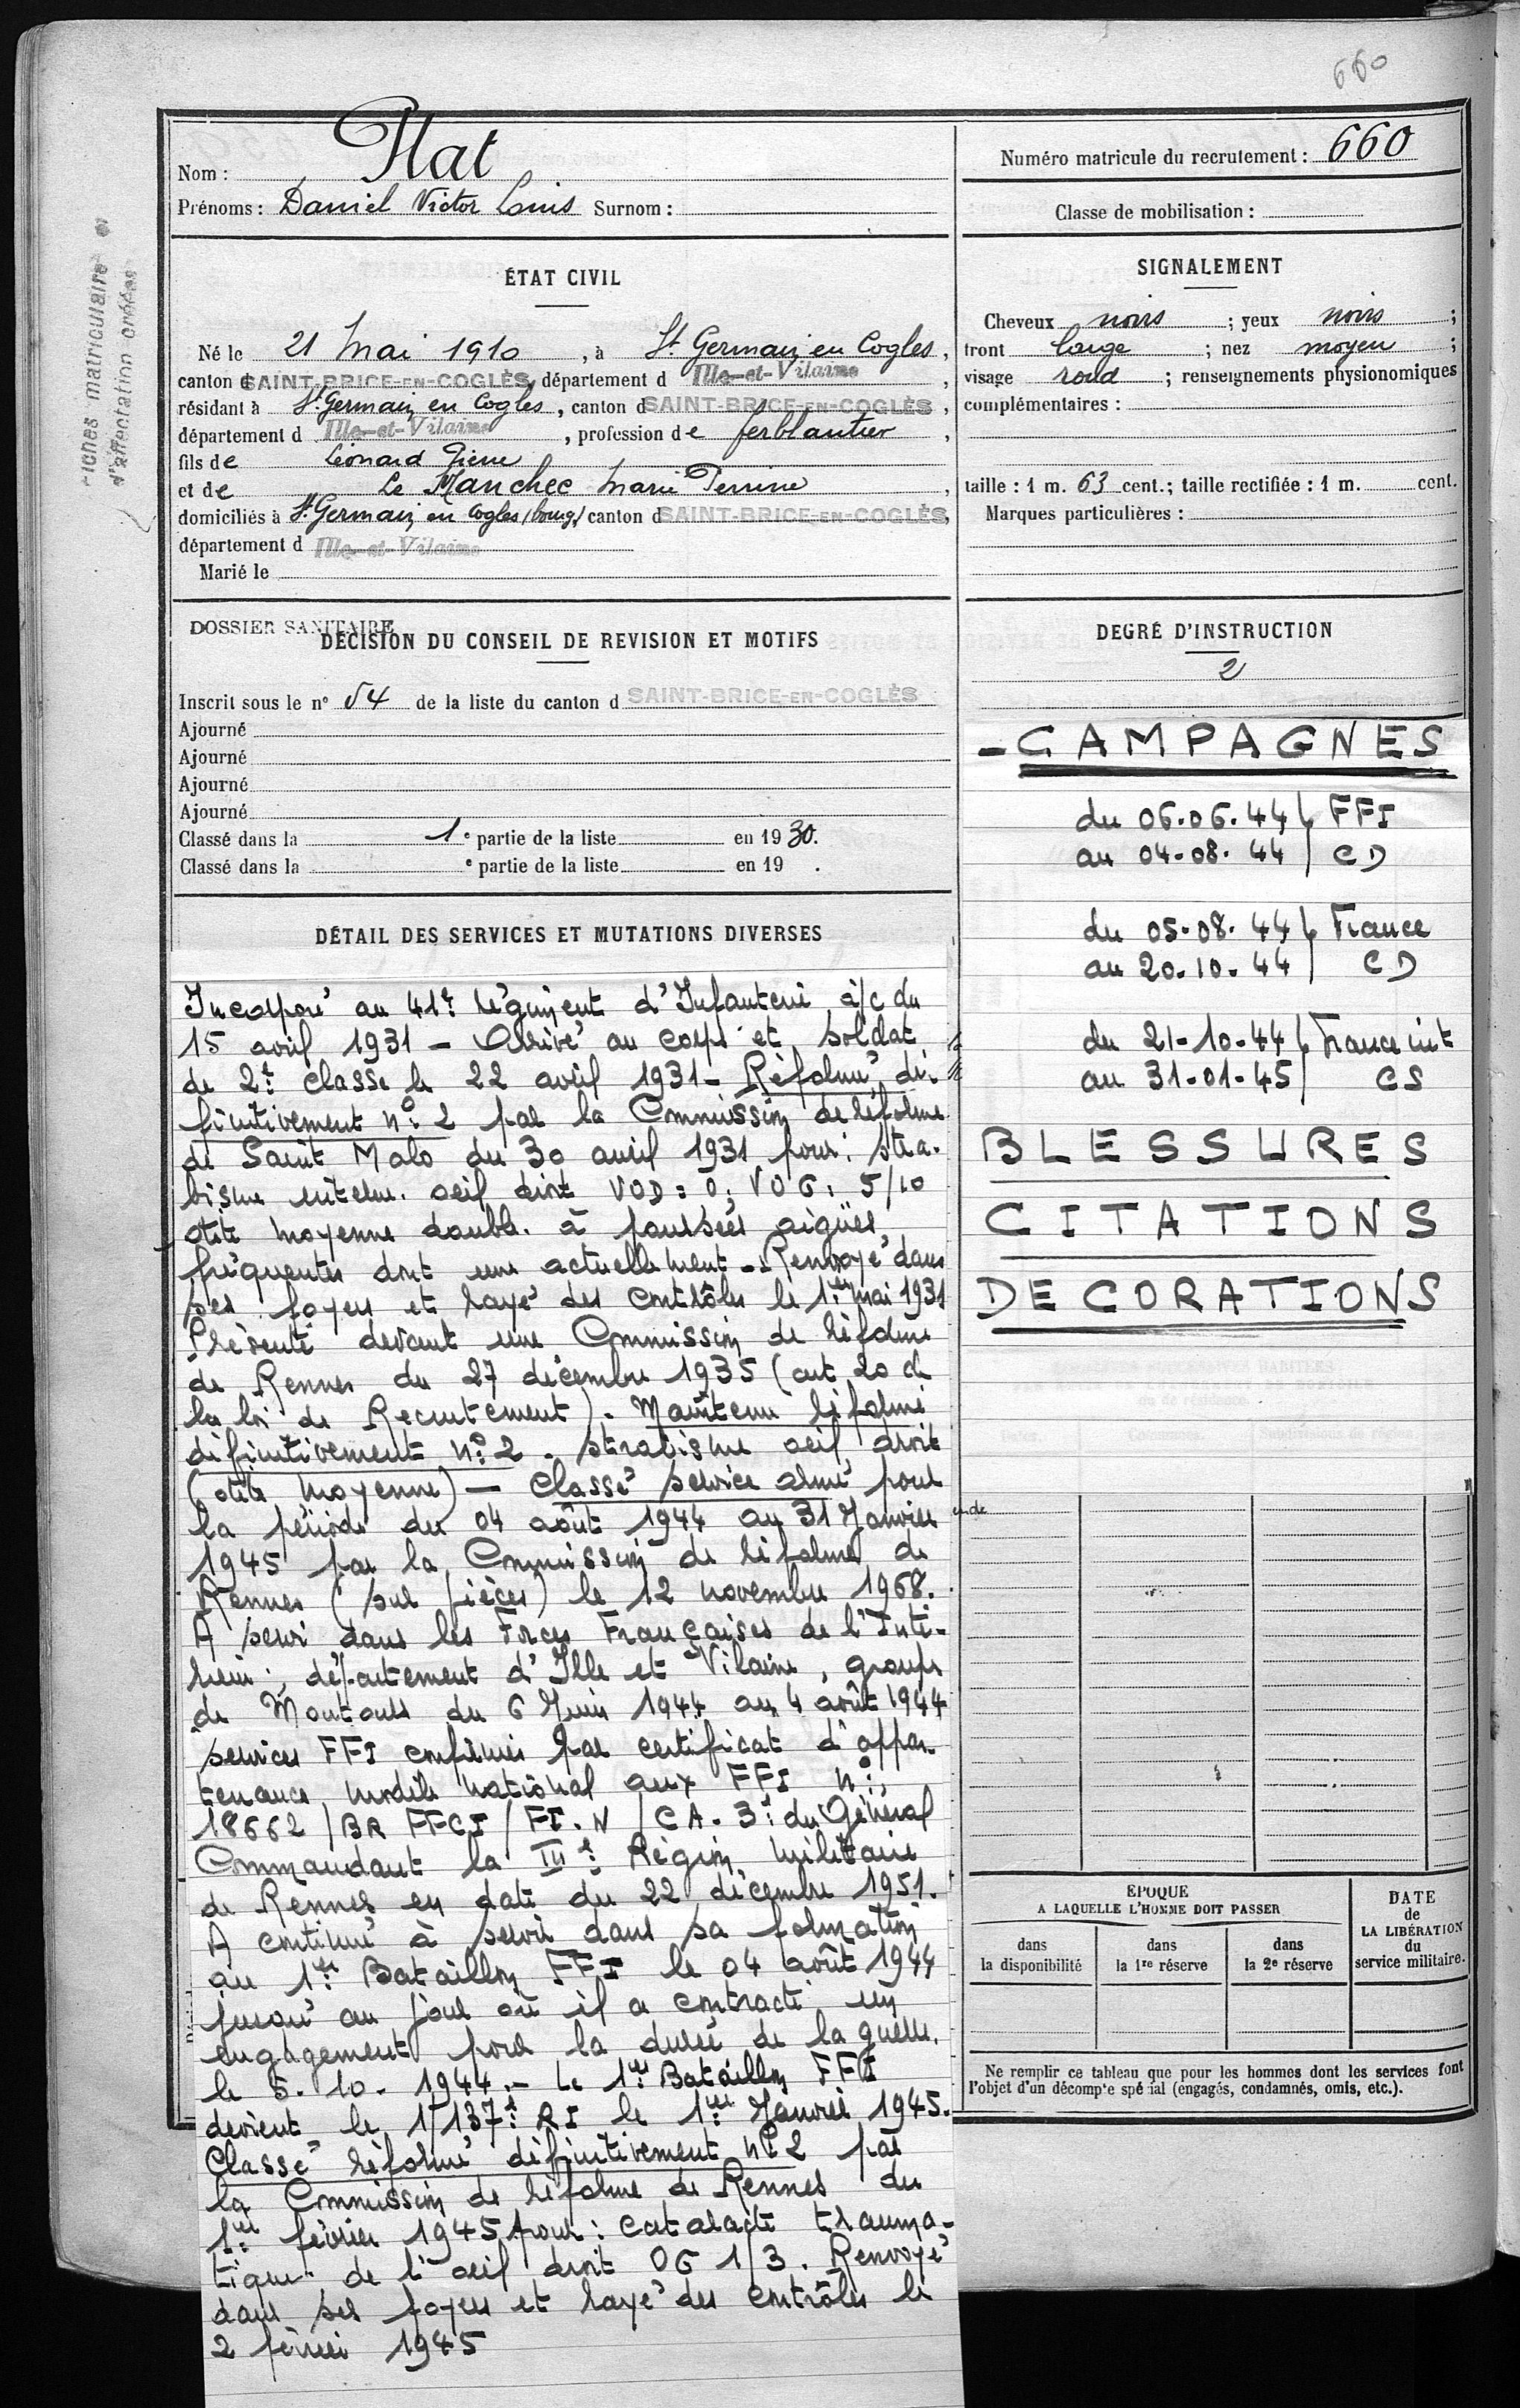 660
Nom : Plat
Prénoms : Daniel Victor Louis Surnom :
Numéro matricule du recrutement : 660
Classe de mobilisation :
Fiches matriculaire et
d'affectation créées
ÉTAT CIVIL
Né le 21 Mai 1910, à St Germain en Cogles,
canton d SAINT-BRICE-EN-COGLÈS, département d Ille-et-Vilaine,
résidant à St Germain en Cogles, canton d SAINT-BRICE-EN-COGLÈS,
département d Ille-et-Vilaine, profession de ferblantier,
fils de Léonard Pierre
et de Le Manchec Marie Perrine,
domiciliés à St Germain en Cogles (bourg) canton d SAINT-BRICE-EN-COGLÈS,
département d Ille-et-Vilaine
Marié le
SIGNALEMENT
Cheveux noirs ; yeux noirs ;
front large ; nez moyen ;
visage rond ; renseignements physionomiques
complémentaires :
taille : 1 m. 63 cent.; taille rectifiée : 1 m. cent.
Marques particulières :
DOSSIER SANITAIRE
DÉCISION DU CONSEIL DE REVISION ET MOTIFS
Inscrit sous le n° 54 de la liste du canton d SAINT-BRICE-EN-COGLÈS
Ajourné
Ajourné
Ajourné
Ajourné
Classé dans la 1e partie de la liste en 1930.
Classé dans la e partie de la liste en 19 .
DEGRÉ D'INSTRUCTION
2
- CAMPAGNES
du 06.06.44 FFI
au 04-08.44 CD
du 05-08.44 France
au 20.10.44 CD
du 21-10-44 France int
au 31-01-45 CS
BLESSURES
CITATIONS
DECORATIONS
DÉTAIL DES SERVICES ET MUTATIONS DIVERSES
Incorporé au 41e régiment d'Infanterie à/c du
15 avril 1931 - Arrivé au corps et soldat
de 2e classe le 22 avril 1931 - Réformé dé-
finitivement n° 2 par la Commission de réforme
de Saint Malo du 30 avril 1931 pour : stra-
bisme interne oeil droit VOD = 0, VOG : 5/10
otite moyenne double à poussées aigües
fréquentes dont une actuellement - Renvoyé dans
ses foyers et rayé des contrôles le 1er mai 1931
Présenté devant une Commission de réforme
de Rennes du 27 décembre 1935 (art. 20 de
la loi de Recrutement). Maintenu réformé
définitivement n° 2. strabisme oeil droit
(otite moyenne) - Classé service armé pour
la période du 04 août 1944 au 31 Janvier
1945 par la Commission de réforme de
Rennes (sur pièces) le 12 novembre 1968.
A servi dans les Forces Françaises de l'Inté-
rieur, département d'Ille et Vilaine, groupe
de Montours du 6 Juin 1944 au 4 août 1944
services FFI confirmés par certificat d'appar-
tenance modèle national aux FFI n°
18662 / BR FFCI / FI.N / CA. 3e du Général
Commandant la IIIe Région Militaire
de Rennes en date du 22 décembre 1951.
A continué à servir dans sa formation
au 1er Bataillon FFI le 04 août 1944
jusqu'au jour où il a contracté un
engagement pour la durée de la guerre.
le 5.10.1944. - Le 1er Bataillon FFI
devient le 1/137e RI le 1er Janvier 1945.
Classé réformé définitivement n° 2 par
la Commission de réforme de Rennes du
1er février 1945 pour : cataracte trauma-
tique de l'oeil droit OG 1/3. Renvoyé
dans ses foyers et rayé des contrôles le
2 février 1945
ÉPOQUE
A LAQUELLE L'HOMME DOIT PASSER
dans
la disponibilité
dans
la 1re réserve
dans
la 2e réserve
DATE
de
LA LIBÉRATION
du
service militaire.
Ne remplir ce tableau que pour les hommes dont les services font
l'objet d'un décompte spécial (engagés, condamnés, omis, etc.).